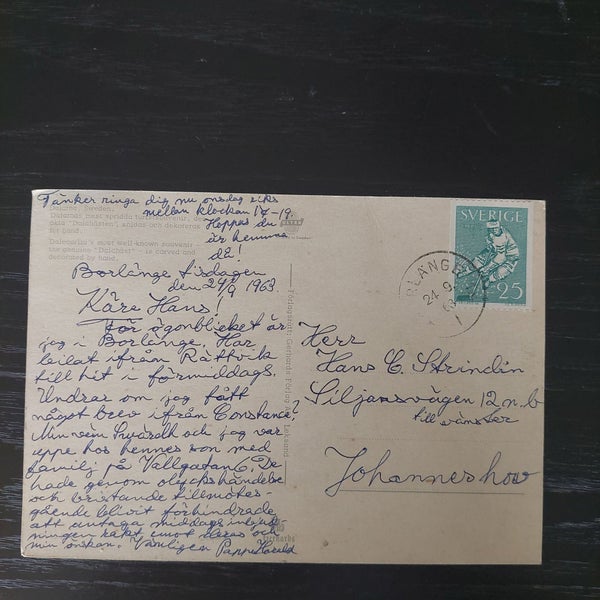 Tänker ringa dig nu onsdag
mellan klockan 18-19.
Hoppas du
är hemma
då!
Sweden.
Dalarnas mest spridda
"Dalahäst", snidas och dekoreras
för hand.
Dalecarlia's most well-known souvenir -
the genuine "Dalahäst" - is carved and
decorated by hand.
Borlänge tisdagen
den 24/9 1963.
Käre Hans!
För ögonblicket är
jag i Borlänge. Har
ifrån Rättvik
till hit i förmiddags.
Undras om jag fått
något brev ifrån Constance?
Min vän Swärdh och jag var
uppe hos hennes son med
familj på Vallgatan 6. De
hade genom olyckshändelse
och bristande tillmötes-
gående blivit förhindrade
att antaga middags
rakt emot deras och
min önskan. Vänligen Pappa Harald
Förlagsrätt: Gerhards Förlag Leksand
SVERIGE
25
BORLÄNGE
24.9.
63
Herr
Hans C. Strindin
Siljansvägen 12 n.b
till vänster
Johanneshov